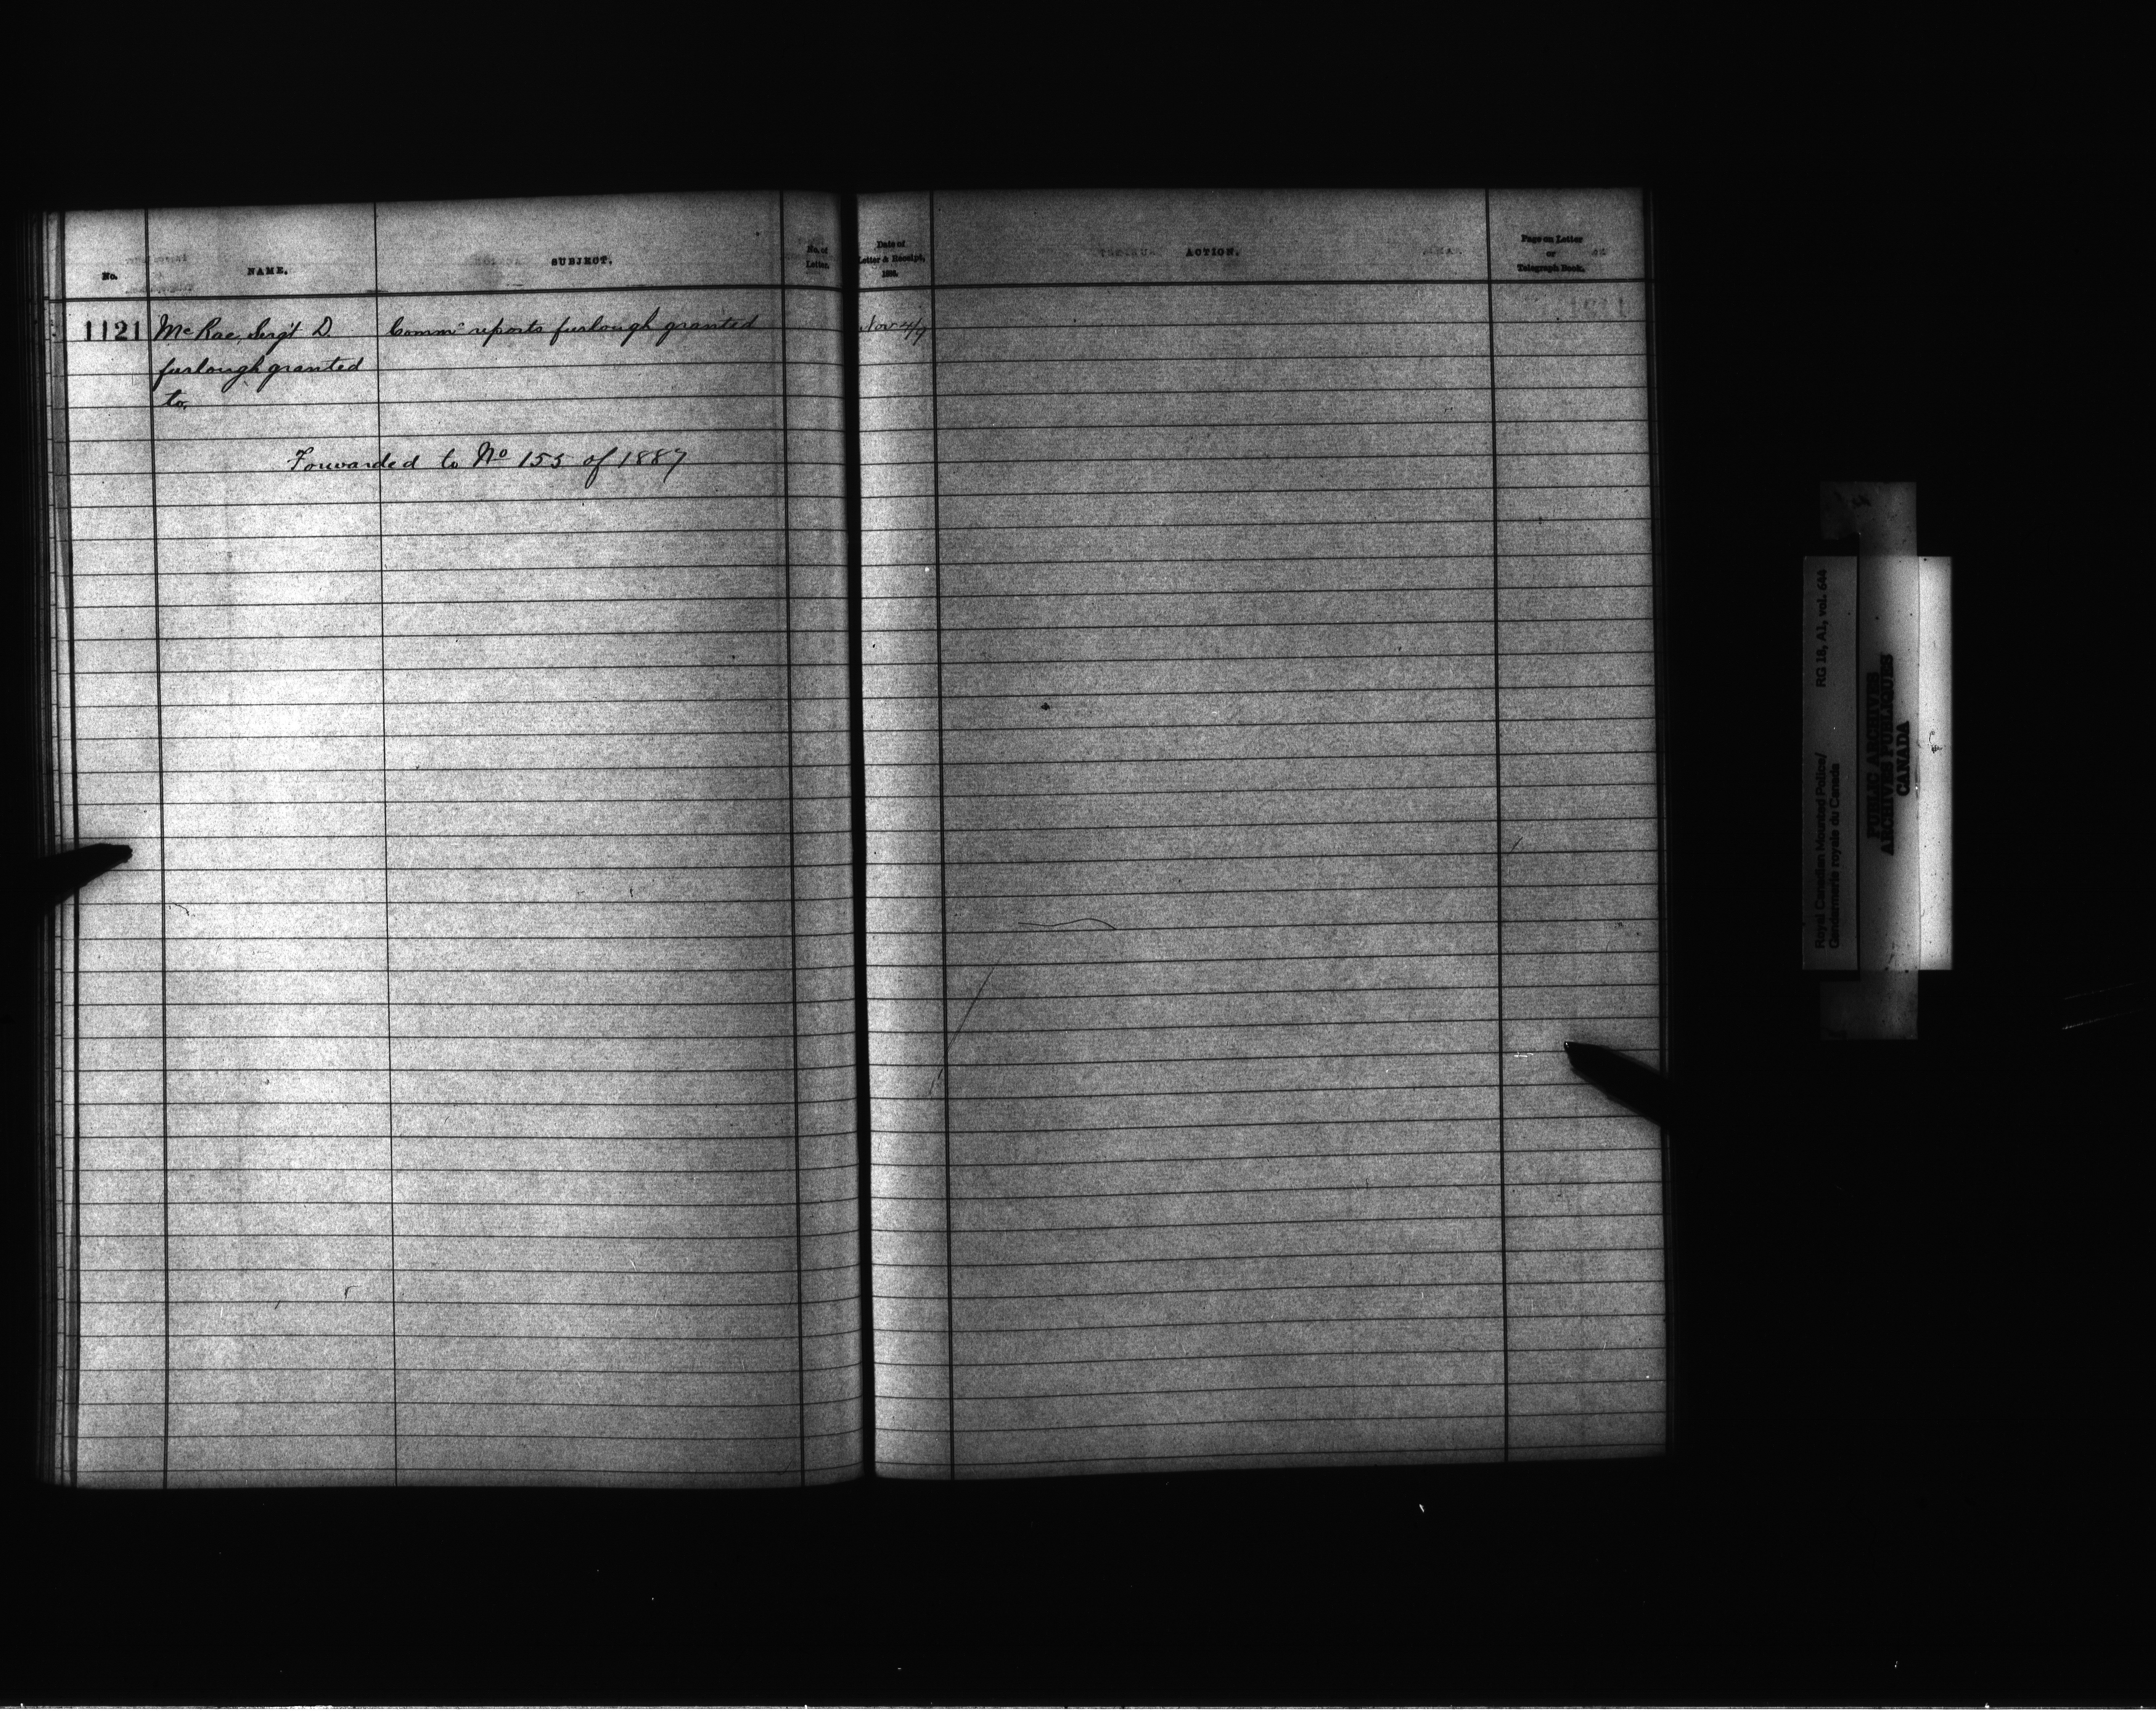 No.
NAME.
SUBJECT.
No. of
Letter.
Date of
Letter & Receipt,
ACTION.
Page on Letter
or
Telegraph Book.
1121 McRae, Sergt D. Commr reports furlough granted Nov 4/9
furlough granted
to,
Forwarded to No 155 of 1887
Royal Canadian Mounted Police/ RG 18, A1, vol. 644
Gendarmerie royale du Canada
PUBLIC ARCHIVES
ARCHIVES PUBLIQUES
CANADA